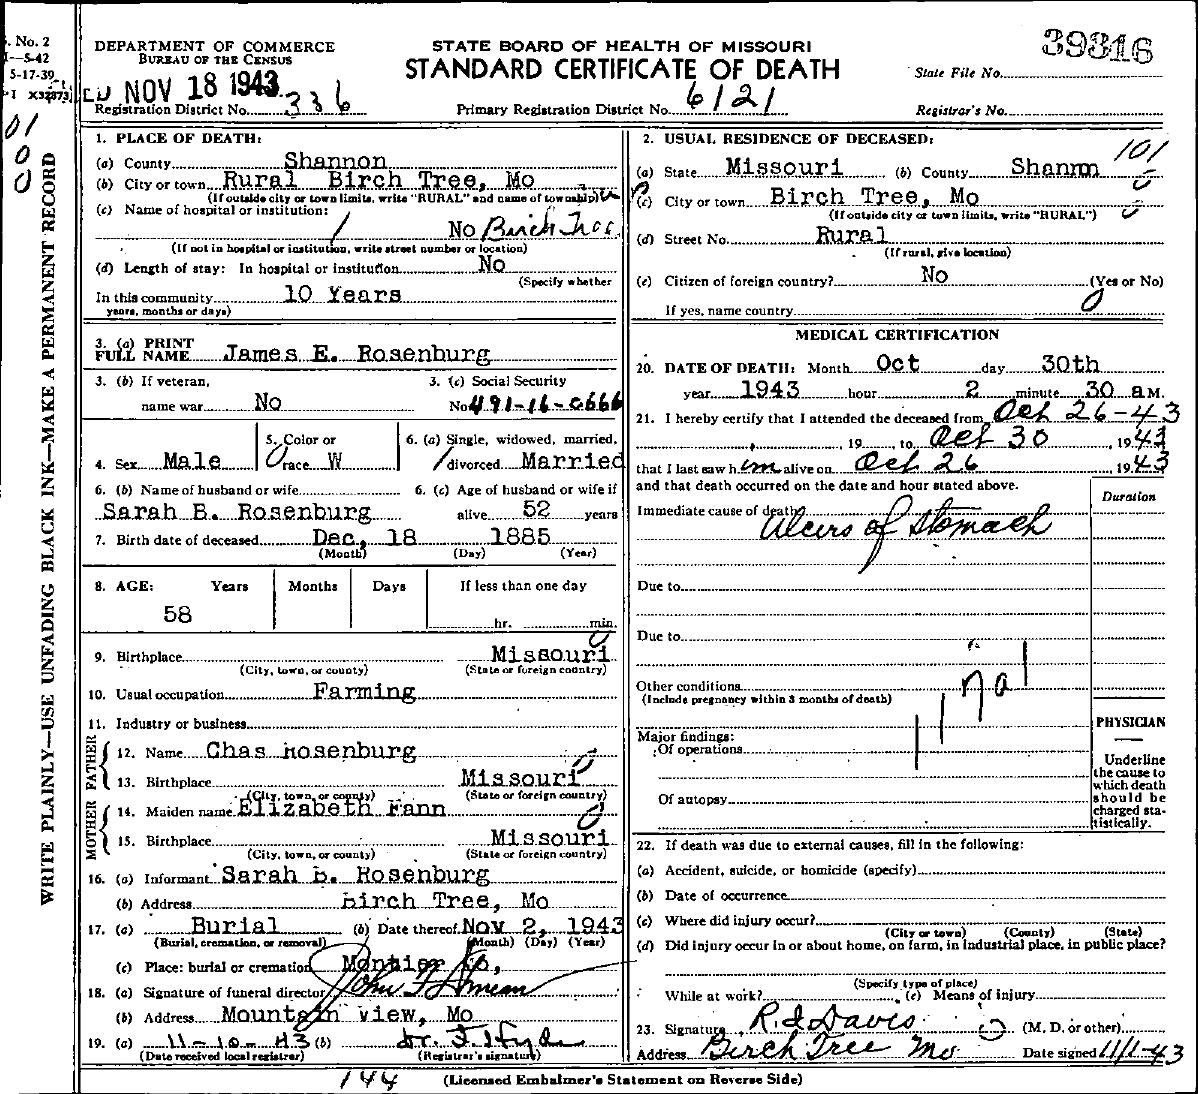 . No. 2
1—5-42
5-17-39
PI X32873
39316
DEPARTMENT OF COMMERCE
BUREAU OF THE CENSUS
STATE BOARD OF HEALTH OF MISSOURI
STANDARD CERTIFICATE OF DEATH
State File No.
ED NOV 18 1943
Registration District No. 336
Primary Registration District No. 6121
Registrar's No.
01
0
0
WRITE PLAINLY—USE UNFADING BLACK INK—MAKE A PERMANENT RECORD
1. PLACE OF DEATH:
(a) County Shannon
(b) City or town Rural Birch Tree, Mo
(If outside city or town limits, write "RURAL" and name of township)
(c) Name of hospital or institution:
No Birch Tree
(If not in hospital or institution, write street number or location)
(d) Length of stay: In hospital or institution No
(Specify whether
In this community 10 Years
years, months or days)
3. (a) PRINT
FULL NAME James E. Rosenburg
3. (b) If veteran,
name war No
3. (c) Social Security
No 491-16-0666
4. Sex Male
5. Color or
race W
6. (a) Single, widowed, married,
divorced Married
6. (b) Name of husband or wife
Sarah B. Rosenburg
6. (c) Age of husband or wife if
alive 52 years
7. Birth date of deceased Dec, 18 1885
(Month) (Day) (Year)
8. AGE: Years Months Days If less than one day
58 hr. min.
9. Birthplace Missouri
(City, town, or county) (State or foreign country)
10. Usual occupation Farming
11. Industry or business
FATHER
12. Name Chas Rosenburg
13. Birthplace Missouri
(City, town, or county) (State or foreign country)
MOTHER
14. Maiden name Elizabeth Fann
15. Birthplace Missouri
(City, town, or county) (State or foreign country)
16. (a) Informant Sarah B. Rosenburg
(b) Address Birch Tree, Mo
17. (a) Burial (b) Date thereof Nov 2, 1943
(Burial, cremation, or removal) (Month) (Day) (Year)
(c) Place: burial or cremation Montier Mo,
18. (a) Signature of funeral director John F
(b) Address Mountain View, Mo
19. (a) 11-10-43 (b) Hyde
(Date received local registrar) (Registrar's signature)
2. USUAL RESIDENCE OF DECEASED:
101
(a) State Missouri (b) County Shannon
(c) City or town Birch Tree, Mo
(If outside city or town limits, write "RURAL")
(d) Street No. Rural
(If rural, give location)
(e) Citizen of foreign country? No (Yes or No)
If yes, name country 0
MEDICAL CERTIFICATION
20. DATE OF DEATH: Month Oct day 30th
year 1943 hour 2 minute 30 a M.
21. I hereby certify that I attended the deceased from Oct 26-43
, 19 to Oct 30, 1943
that I last saw h im alive on Oct 26, 1943
and that death occurred on the date and hour stated above.
Duration
Immediate cause of death Ulcers of Stomach
Due to
Due to
Other conditions
(Include pregnancy within 3 months of death)
117a1
Major findings:
Of operations
Of autopsy
PHYSICIAN
—
Underline
the cause to
which death
should be
charged sta-
tistically.
22. If death was due to external causes, fill in the following:
(a) Accident, suicide, or homicide (specify)
(b) Date of occurrence
(c) Where did injury occur?
(City or town) (County) (State)
(d) Did injury occur in or about home, on farm, in industrial place, in public place?
(Specify type of place)
While at work? (e) Means of injury
23. Signature R. L. Davis (M. D. or other)
Address Birch Tree Mo Date signed 11/1-43
144
(Licensed Embalmer's Statement on Reverse Side)